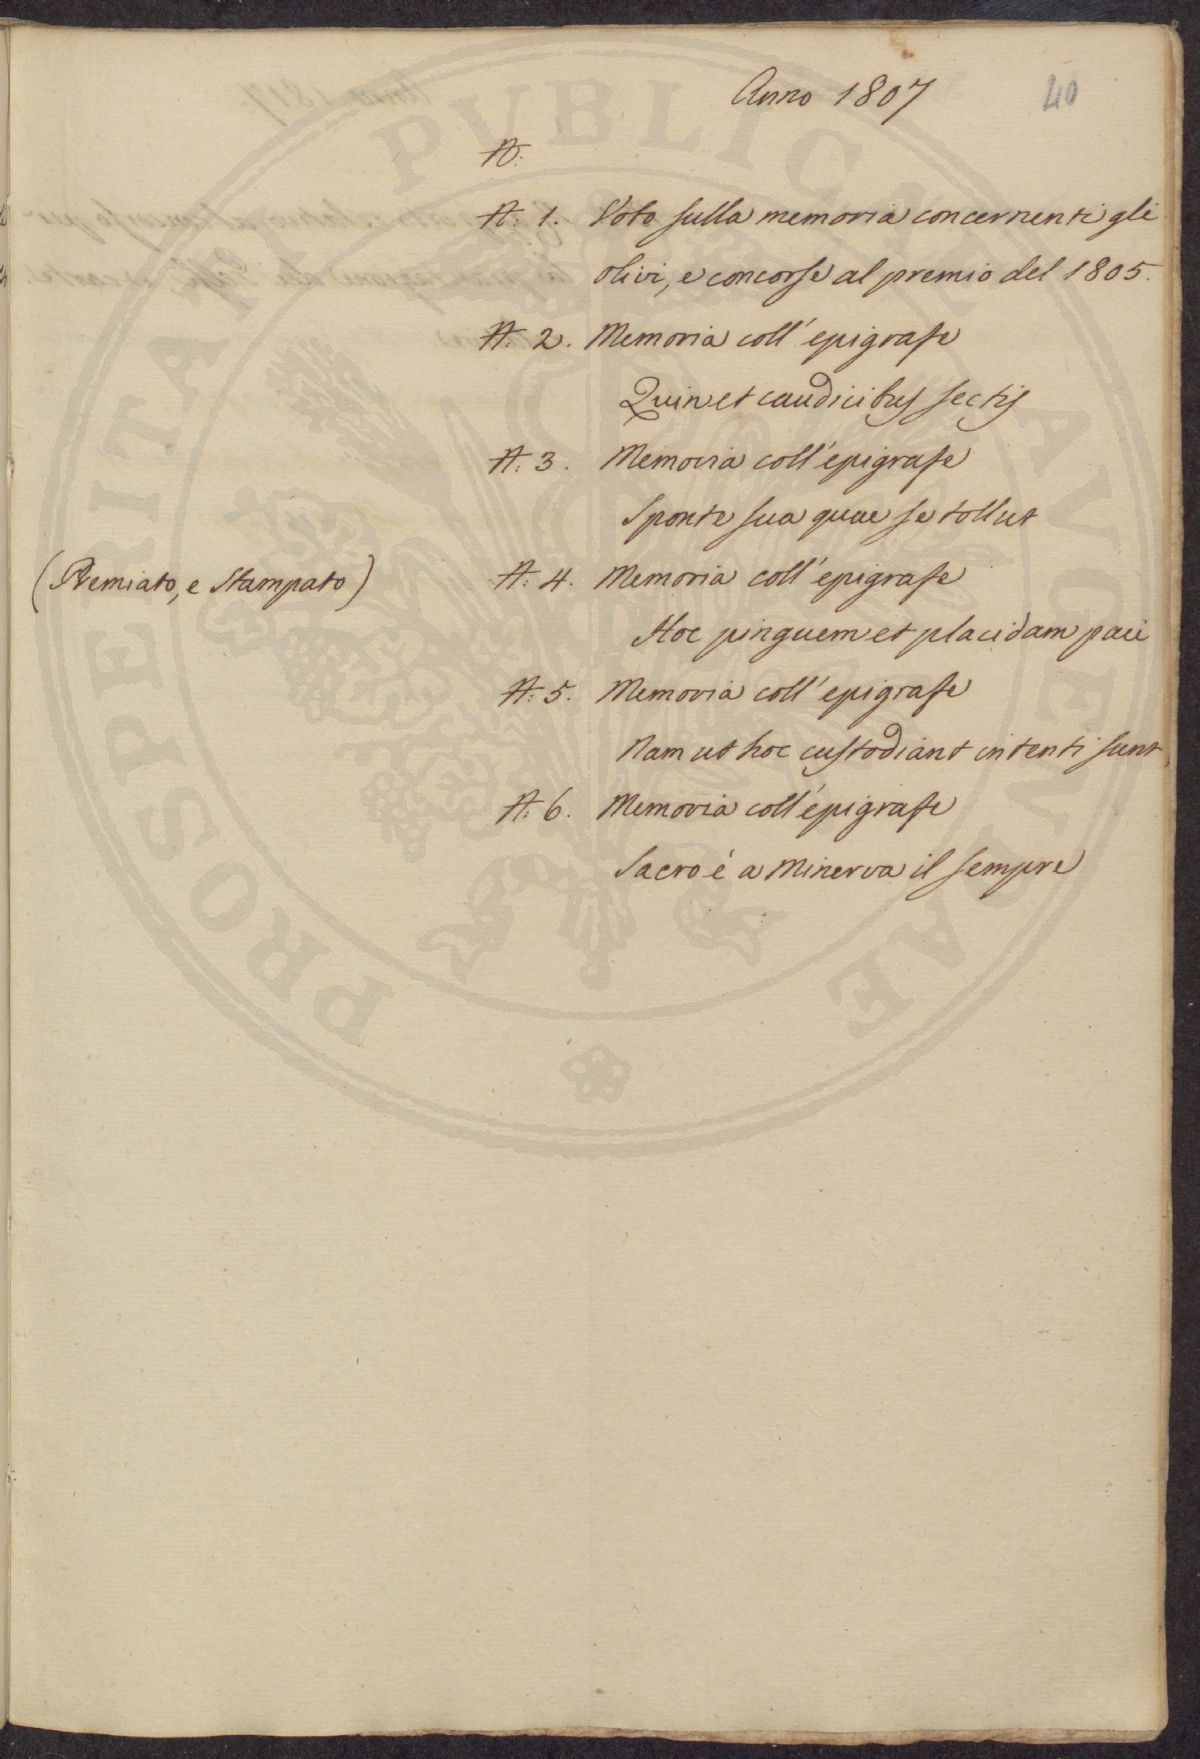 Anno 1807
40
N:
N: 1. Voto sulla memoria concernenti gli
olivi, e concorse al premio del 1805.
N: 2. Memoria coll' epigrafe
Quin et caudicibus sectis
N: 3. Memoria coll' epigrafe
Sponte sua quae se tollut
(Premiato, e Stampato) N: 4. Memoria coll' epigrafe
Hoc pinguem et placidam paci
N: 5. Memoria coll' epigrafe
Nam ut hoc custodiant intenti sunt
N: 6. Memoria coll' epigrafe
Sacro è a Minerva il sempre
PROSPERITATI PUBLICAE AVGENDAE